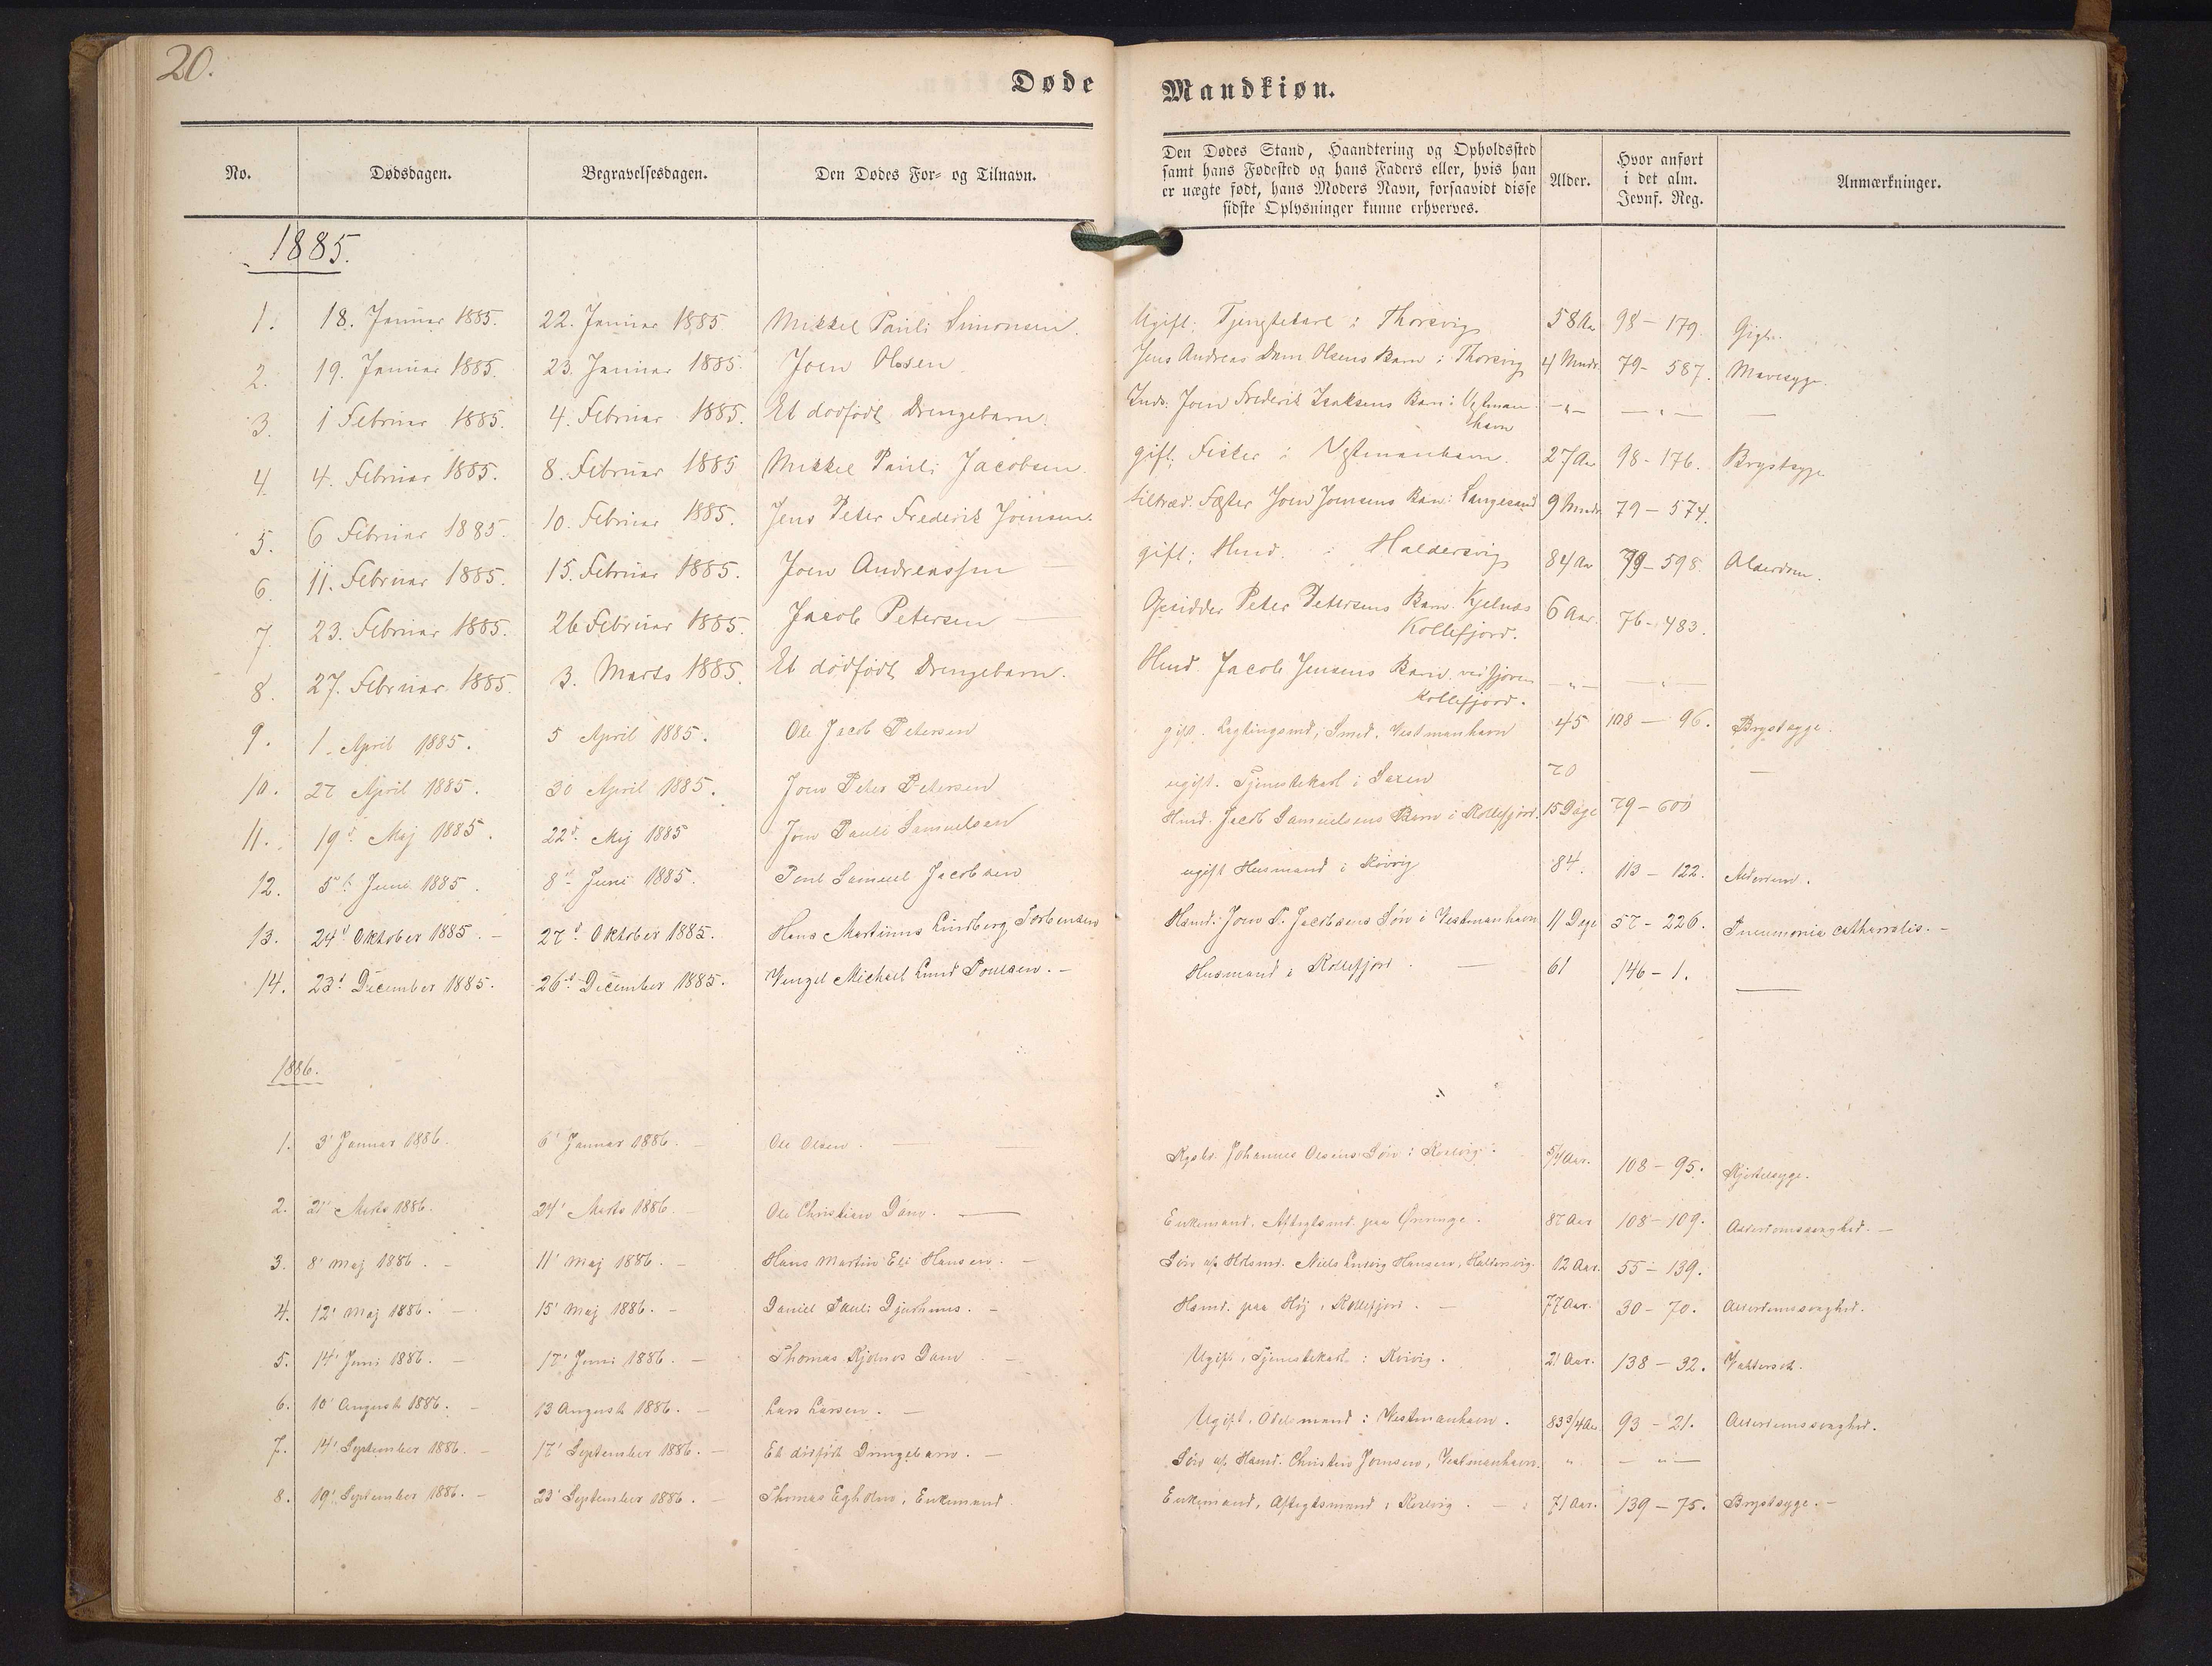 20.
Døde Mandkiøn.
No. Dødsdagen. Begravelsesdagen. Den Dødes For- og Tilnavn. Den Dødes Stand, Haandtering og Opholdssted samt hans Fødested og hans Faders eller, hvis han er uægte født, hans Moders Navn, forsaavidt disse sidste Oplysninger kunne erhverves. Alder. Hvor anført i det alm. Jevnf. Reg. Anmærkninger.
1885.
1. 18. Januar 1885. 22. Januar 1885 Mikkel Pauli Simonsen. Ugift. Tjenestekarl i Thorsvig 58 Aar 98 - 179. Gigt.
2. 19. Januar 1885. 23. Januar 1885. Joen Olesen. Jens Andreas Dam Olsens Barn i Thorsvig 4 Mndr. 79 - 587. Mavesyge.
3. 1 Februar 1885. 4. Februar 1885. Et dødfødt Drengebarn. Inds. Joen Frederik Isaksens Barn i Vestmanhavn - " - - " -
4. 4. Februar 1885. 8. Februar 1885 Mikkel Pauli Jacobsen. gift. Fisker i Vestmanhavn. 27 Aar 98 - 176. Brystsyge
5. 6 Februar 1885. 10. Februar 1885. Jens Peter Frederik Joensen. tiltræd. Fæster Joen Joensens Barn i Langesand 9 Mndr. 79 - 574.
6. 11. Februar 1885. 15. Februar 1885. Joen Andreassen gift. Hmd. i Haldersvig 84 Aar 79 - 598. Alderdom.
7. 23. Februar 1885. 26 Februar 1885. Jacob Petersen Opsidder Peter Petersens Barn. Kjelnæs Kollefjord. 6 Aar. 76 - 483.
8. 27. Februar 1885. 3. Marts 1885. Et dødfødt Drengebarn. Hmd. Jacob Jensens Barn. ved Sjøen Kollefjord. - " - - " -
9. 1. April 1885. 5 April 1885. Ole Jacob Petersen gift. Lagtingsmd, Smed. Vestmanhavn 45 108 - 96. Brystsyge.
10. 27 April 1885. 30 April 1885. Joen Peter Petersen ugift. Tjenestekarl i Saxen 70 -
11. 19d. Maj 1885. 22d. Maj 1885 Joen Pauli Samuelsen Hmd. Jacob Samuelsens Barn i Kollefjord. 15 Dage 79 - 600
12. 5te Juni 1885. 8de Juni 1885. Poul Samuel Jacobsen ugift Husmand i Kvivig 84. 113 - 122. Alderdom.
13. 24d Oktober 1885. - 27d Oktober 1885. Hans Martinus Lindberg Jacobsen Hsmd. Joen P. Jacobsens Søn i Vestmanhavn 11 Dage 57 - 226. Pneumonia catharralis. -
14. 23d December 1885. 26d December 1885. Venzel Michael Lund Poulsen. - Husmand i Kollefjord. 61 146 - 1.
1886.
1. 3' Januar 1886. 6' Januar 1886. Ole Olsen. Johannes Olsens Søn i Kvivig. 5/4 Aar. 108 - 95. Kjertelsyge.
2. 21' Marts 1886. 24' Marts 1886. Ole Christian Dam. Enkemand. Aftægtsmd. paa Ørenge. 87 Aar 108 - 109. Alderdomssvaghed. -
3. 8' Maj 1886. - 11' Maj 1886. - Hans Martin Eli Hansen. - Søn af Hdsmd. Niels Ludvig Hansen, Haldersvig. 12 Aar. 55 - 139.
4. 12' Maj 1886. - 15' Maj 1886. - Daniel Pauli Djurhuus. - Hsmd. paa Høj i Kollefjord. - 77 Aar. 30 - 70. Alderdomssvaghed.
5. 14' Juni 1886. - 17' Juni 1886. - Thomas Kjelnæs Dam. - Ugift. Tjenestekarl i Kvivig. 21 Aar. 138 - 32. Vattersot.
6. 10' August 1886. - 13 August 1886. - Lars Larsen. - Ugift. Odelsmand i Vestmanhavn. 83 3/4 Aar 93 - 21. Alderdomssvaghed.
7. 14' September 1886. - 17' September 1886. - Et dødfødt Drengebarn. - Søn af Hsmd. Christen Joensen, Vestmanhavn. " - " -
8. 19' September 1886. - 23' September 1886. - Thomas Egholm, Enkemand Enkemand, Aftægtsmand i Kvivig. - 71 Aar. 139 - 75. Brystsyge. -